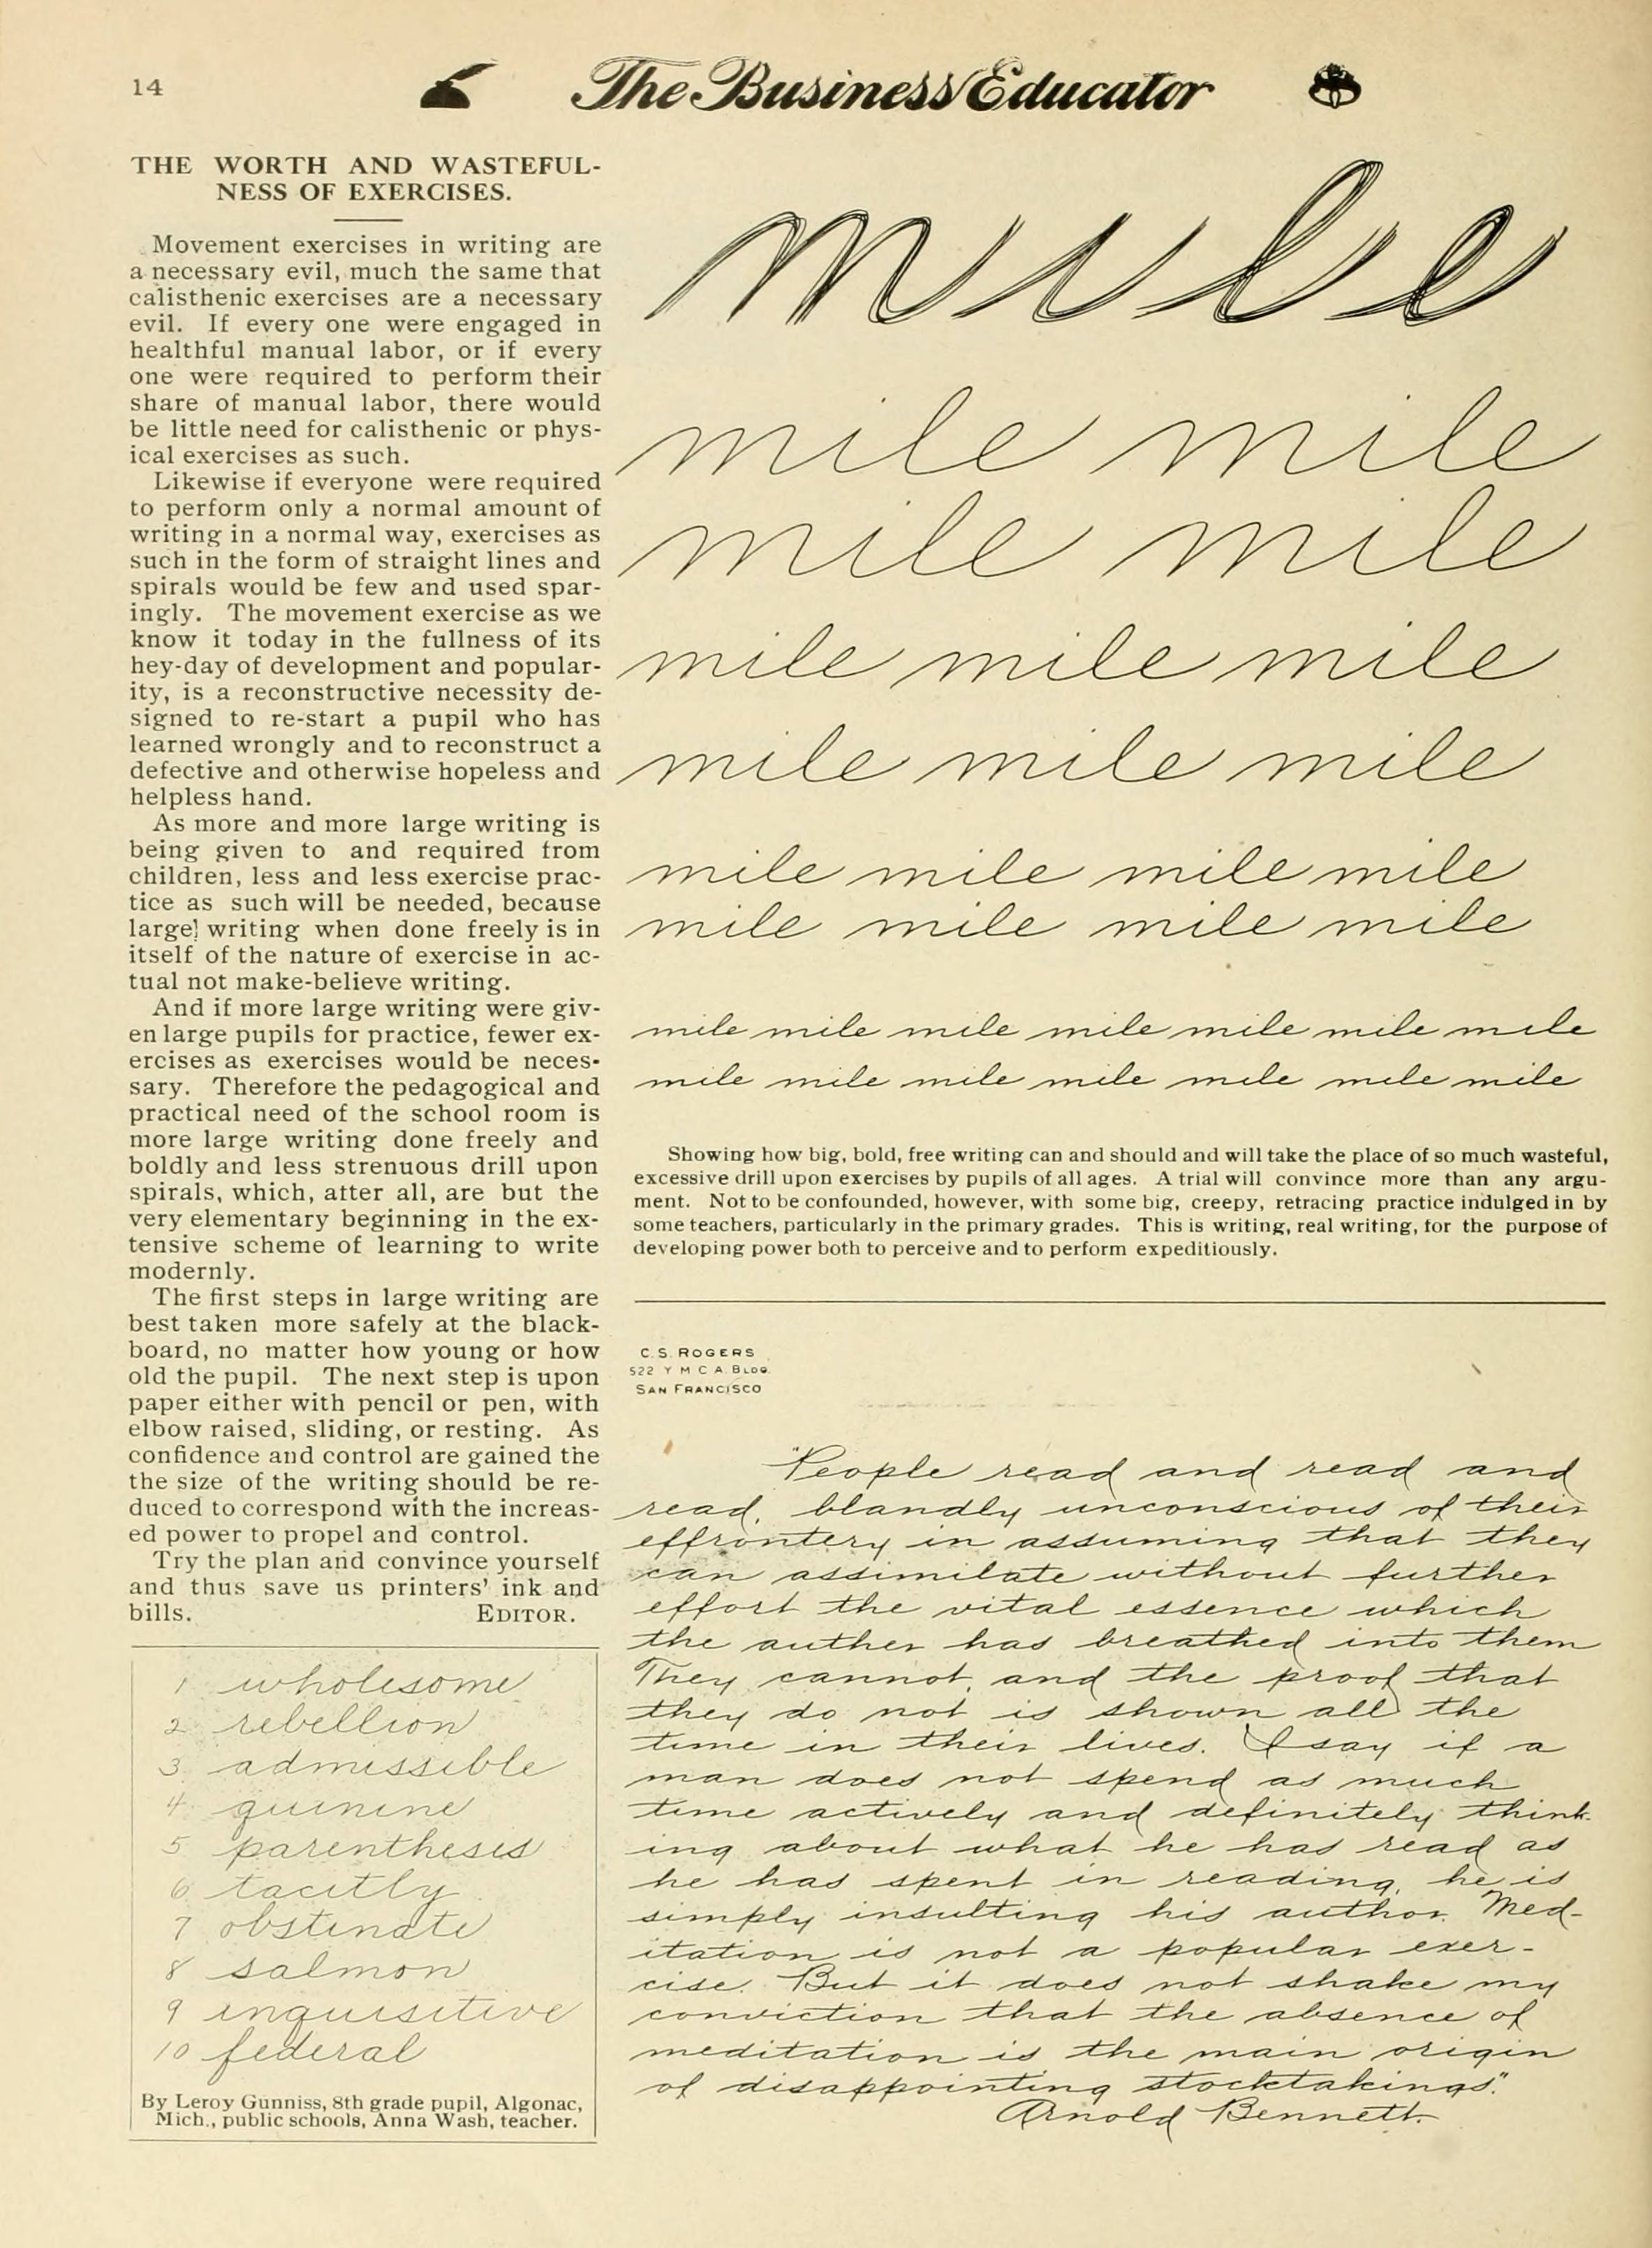 14
The Business Educator
THE WORTH AND WASTEFUL-
NESS OF EXERCISES.
Movement exercises in writing are
a necessary evil, much the same that
calisthenic exercises are a necessary
evil. If every one were engaged in
healthful manual labor, or if every
one were required to perform their
share of manual labor, there would
be little need for calisthenic or phys-
ical exercises as such.
Likewise if everyone were required
to perform only a normal amount of
writing in a normal way, exercises as
such in the form of straight lines and
spirals would be few and used spar-
ingly. The movement exercise as we
know it today in the fullness of its
hey-day of development and popular-
ity, is a reconstructive necessity de-
signed to re-start a pupil who has
learned wrongly and to reconstruct a
defective and otherwise hopeless and
helpless hand.
As more and more large writing is
being given to and required from
children, less and less exercise prac-
tice as such will be needed, because
large] writing when done freely is in
itself of the nature of exercise in ac-
tual not make-believe writing.
And if more large writing were giv-
en large pupils for practice, fewer ex-
ercises as exercises would be neces-
sary. Therefore the pedagogical and
practical need of the school room is
more large writing done freely and
boldly and less strenuous drill upon
spirals, which, atter all, are but the
very elementary beginning in the ex-
tensive scheme of learning to write
modernly.
The first steps in large writing are
best taken more safely at the black-
board, no matter how young or how
old the pupil. The next step is upon
paper either with pencil or pen, with
elbow raised, sliding, or resting. As
confidence and control are gained the
the size of the writing should be re-
duced to correspond with the increas-
ed power to propel and control.
Try the plan and convince yourself
and thus save us printers' ink and
bills. EDITOR.
1 wholesome
2 rebellion
3. admissible
4. quinine
5 parenthesis
6 tacitly
7 obstinate
8 salmon
9 inquisitive
10 federal
By Leroy Gunniss, 8th grade pupil, Algonac,
Mich., public schools, Anna Wash, teacher.
m i l e
mile mile
mile mile
mile mile mile
mile mile mile
mile mile mile mile
mile mile mile mile
mile mile mile mile mile mile mile
mile mile mile mile mile mile mile
Showing how big, bold, free writing can and should and will take the place of so much wasteful,
excessive drill upon exercises by pupils of all ages. A trial will convince more than any argu-
ment. Not to be confounded, however, with some big, creepy, retracing practice indulged in by
some teachers, particularly in the primary grades. This is writing, real writing, for the purpose of
developing power both to perceive and to perform expeditiously.
C. S. ROGERS
522 Y M C A. BLDG.
SAN FRANCISCO
"People read and read and
read, blandly unconscious of their
effrontery in assuming that they
can assimilate without further
effort the vital essence which
the auther has breathed into them
They cannot, and the proof that
they do not is shown all the
time in their lives. I say if a
man does not spend as much
time actively and definitely think-
ing about what he has read as
he has spent in reading, he is
simply insulting his author. Med-
itation is not a popular exer-
cise. But it does not shake my
conviction that the absence of
meditation is the main origin
of disappointing stocktakings."
Arnold Bennett.